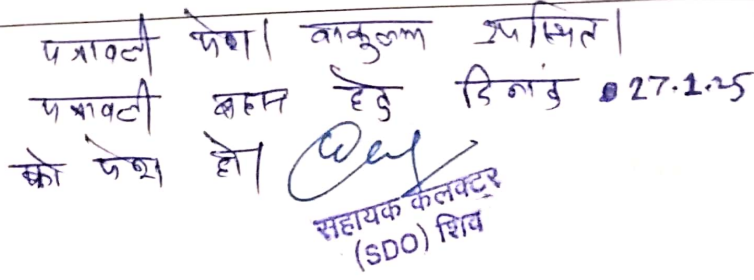 पत्रावली पेश। वकुलाय उपस्थित।
पत्रावली बहस हेतु दिनांक 27.1.25
को पेश हो।
सहायक कलक्टर
(SDO) शिव